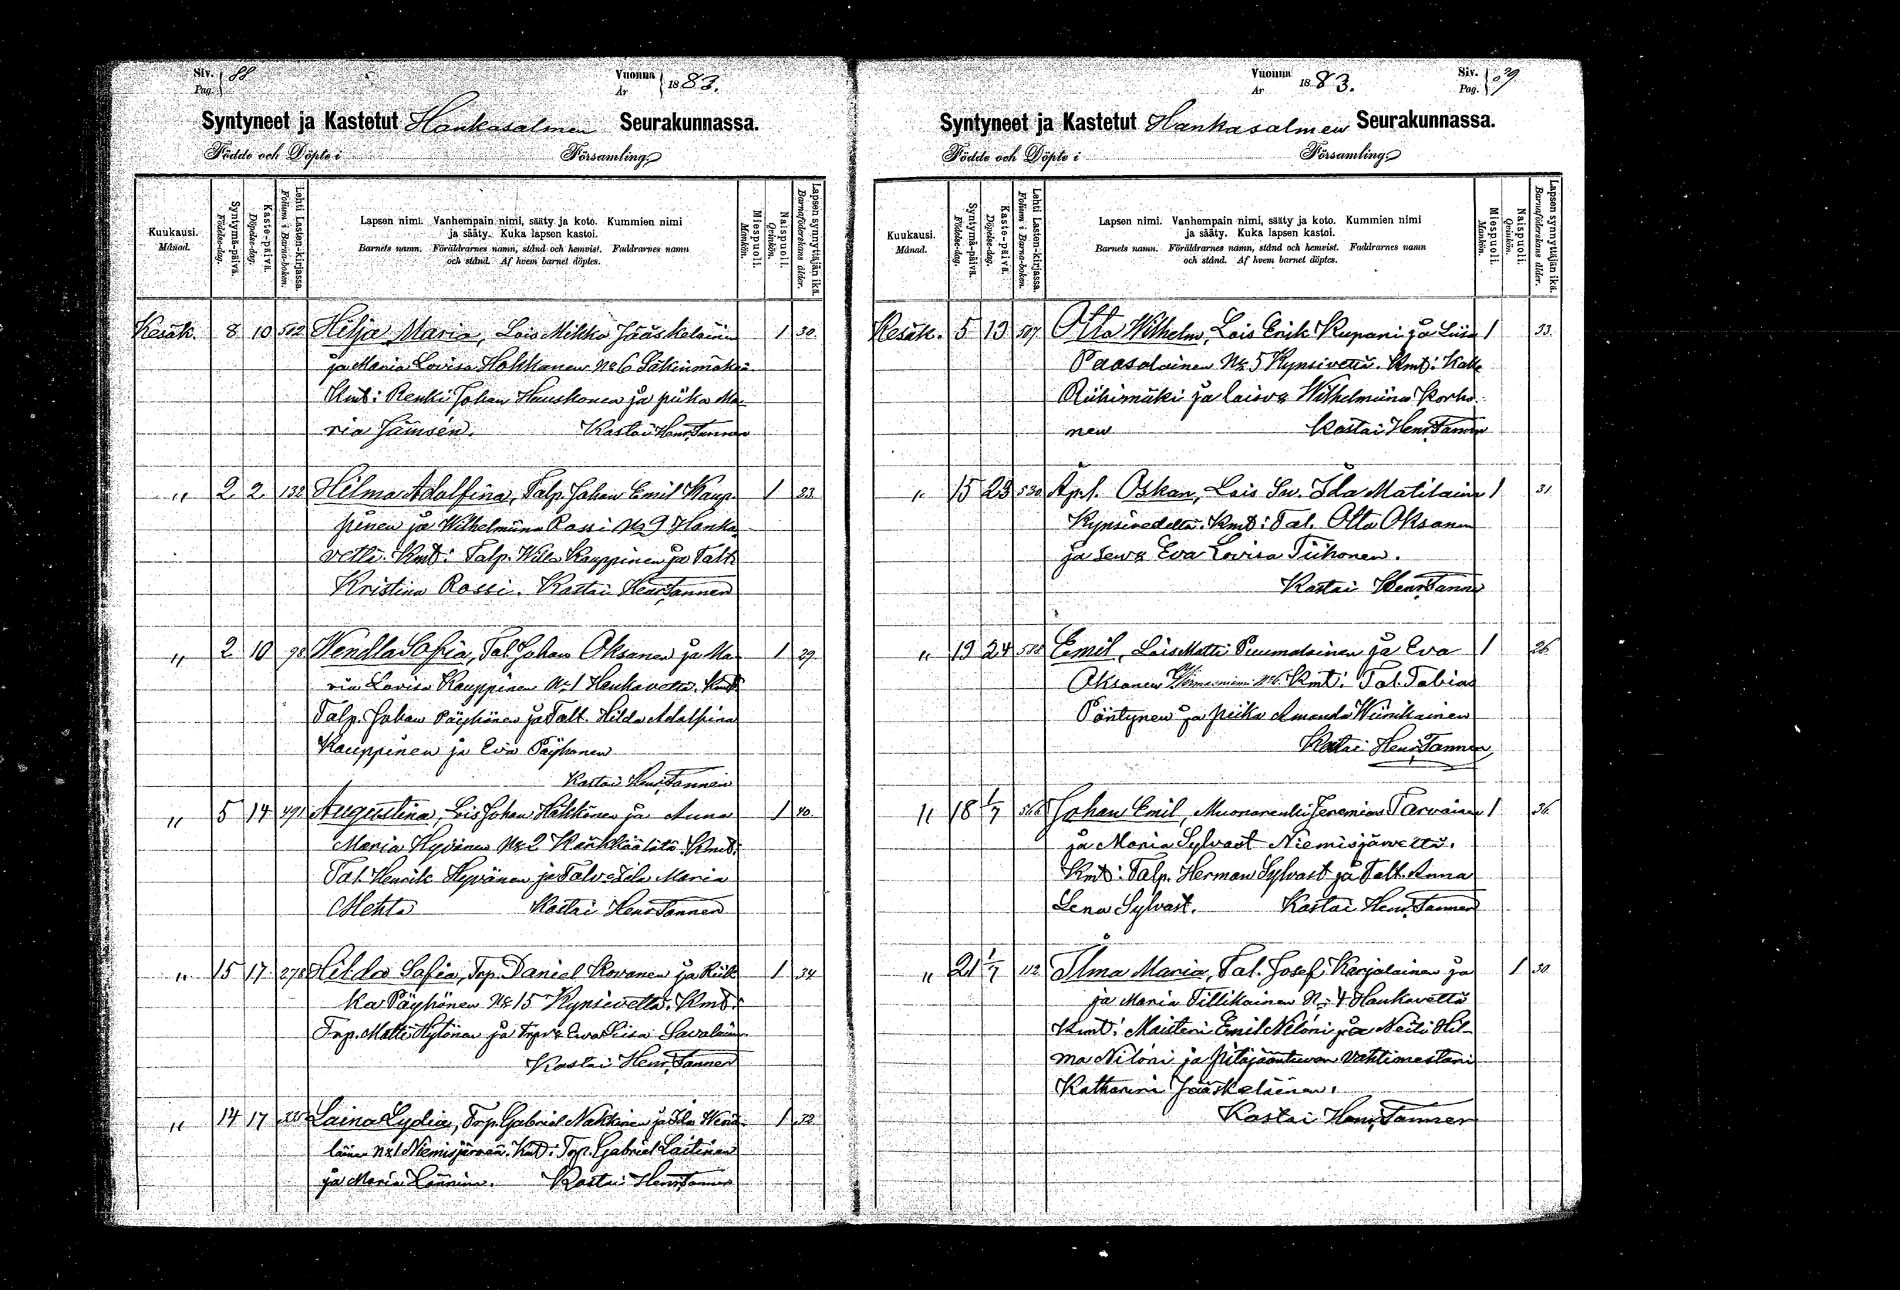 Siv. 88
Pag.
Vuonna 1883.
År
Syntyneet ja Kastetut Hankasalmen Seurakunnassa.
Födde och Döpte i Församling
Kuukausi. Månad.
Syntymä-päivä. Födelse-dag.
Kaste-päivä. Döpelse-dag.
Lehti Lasten-kirjassa. Folium i Barna-boken.
Lapsen nimi. Vanhempain nimi, sääty ja koto. Kummien nimi
ja sääty. Kuka lapsen kastoi.
Barnets namn. Föräldrarnes namn, stånd och hemvist. Faddrarnes namn
och stånd. Af hvem barnet döptes.
Miespuoli. Mankön.
Naispuoli. Qvinkön.
Lapsen synnyttäjän ikä. Barnaföderskans ålder.
Kesäk. 8 10 512 Hilja Maria, Lois Mikko Jääskeläinen 1 30.
ja Maria Lovisa Hokkanen № 6 Säkinmäki
Kmt: Renki Johan Hauskonen ja piika Ma-
ria Jämsén. Kastoi Henr. Tanner
" 2 2 132 Hilma Adolfina, Talp. Johan Emil Kaup- 1 23
pinen ja Wilhelmiina Rossi № 9 Hanka-
vettä. Kmt: Talp. Wille Kauppinen ja Talt.
Kristina Rossi. Kastoi Henr. Tanner
" 2 10 98 Wendla Sofia, Tal. Johan Oksanen ja Ma- 1 29.
ria Lovisa Kauppinen № 1 Hankavettä. Kmt:
Talp. Johan Päyhönen ja Talt. Hilda Adolfina
Kauppinen ja Eva Päyhönen
Kastoi Henr. Tanner
" 5 14 491 Augustina, Lois Johan Häkkänen ja Anna 1 40.
Maria Hyvönen № 2 Kärkkäälitä. Kmt:
Tal. Henrik Hyvönen ja Talv. Ida Maria
Mehto Kastoi Henr. Tanner
" 15 17 278 Hilda Sofia, Trp. Daniel Kovanen ja Riik- 1 34
ka Päyhönen № 15 Kynsivettä. Kmt:
Trp. Matti Hytönen ja trpv. Eva Liisa Savolainen
Kastoi Henr. Tanner
" 14 17 335 Laina Lydia, Trp. Gabriel Nakkinen ja Ida Wenä- 1 32
läinen № 1 Niemisjärveä. Kmt: Trp. Gabriel Laitinen
ja Maria Kastoi Henr. Tanner
Vuonna 1883.
År
Siv. 89
Pag.
Syntyneet ja Kastetut Hankasalmen Seurakunnassa.
Födde och Döpte i Församling
Kuukausi. Månad.
Syntymä-päivä. Födelse-dag.
Kaste-päivä. Döpelse-dag.
Lehti Lasten-kirjassa. Folium i Barna-boken.
Lapsen nimi. Vanhempain nimi, sääty ja koto. Kummien nimi
ja sääty. Kuka lapsen kastoi.
Barnets namn. Föräldrarnes namn, stånd och hemvist. Faddrarnes namn
och stånd. Af hvem barnet döptes.
Miespuoli. Mankön.
Naispuoli. Qvinkön.
Lapsen synnyttäjän ikä. Barnaföderskans ålder.
Kesäk. 5 13 507. Otto Wilhelm, Lois Erik Kupari ja Liisa 1 33.
Paasolainen № 5 Kynsivettä. Kmt: Kalle
Riihimäki ja loisv. Wilhelmiina Korho-
nen Kastoi Henr. Tanner
" 15 23 530 Äpl. Oskar, Lois Sv. Ida Matilainen 1 31
Kynsivedeltä. Kmt: Tal. Otto Oksanen
ja sen v. Eva Lovisa Tiihonen.
Kastoi Henr. Tanner
" 19 24 518 Emil, Lois Matti Puumalainen ja Eva 1 26
Oksanen № 6. Kmt: Tal. Tobias
Pöntynen ja piika Amanda Wiinikainen
Kastoi Henr. Tanner
" 18 1/7 566 Johan Emil, Muonarenki Jeremias Tarvainen 1 36.
ja Maria Sylvast Niemisjärveltä.
Kmt: Talp. Herman Sylvast ja Talt. Anna
Lena Sylvast. Kastoi Henr. Tanner
" 21 1/7 112 Ilma Maria, Tal. Josef Karjalainen ja 1 30.
ja Maria Tillikainen № 4 Hankavettä
Kmt: Maisteri Emil Nilóni ja Neiti Hil-
ma Nilóni ja pitäjäntuvan vahtimestari
Katharina Jääskeläinen.
Kastoi Henr. Tanner